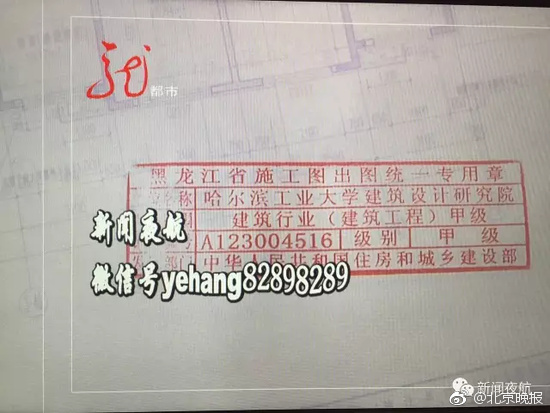 龙
都市
黑龙江省施工图出图统一专用章
称 哈尔滨工业大学建筑设计研究院
建筑行业（建筑工程）甲级
A123004516 级别 甲级
中华人民共和国住房和城乡建设部
新闻夜航
微信号yehang82898289
新闻夜航
@北京晚报